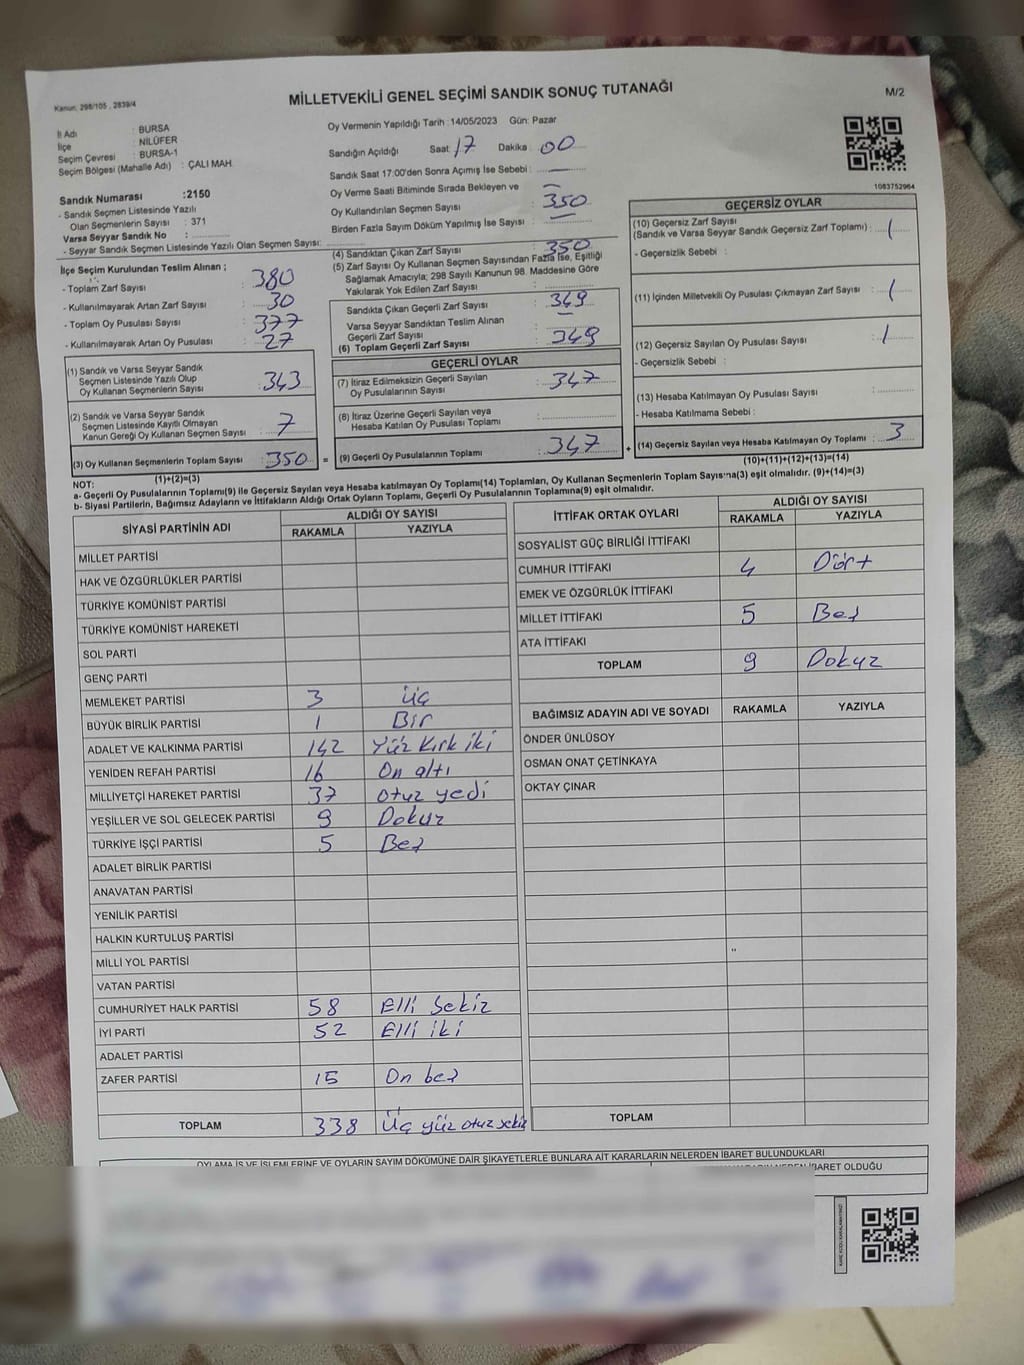 Kanun: 298/105 , 2839/4
MİLLETVEKİLİ GENEL SEÇİMİ SANDIK SONUÇ TUTANAĞI
M/2
İl Adı : BURSA
İlçe : NİLÜFER
Seçim Çevresi : BURSA-1
Seçim Bölgesi (Mahalle Adı) : ÇALI MAH.
Sandık Numarası :2150
- Sandık Seçmen Listesinde Yazılı
Olan Seçmenlerin Sayısı : 371
Varsa Seyyar Sandık No :
- Seyyar Sandık Seçmen Listesinde Yazılı Olan Seçmen Sayısı:
Oy Vermenin Yapıldığı Tarih :14/05/2023 Gün: Pazar
Sandığın Açıldığı Saat : 17 Dakika : 00
Sandık Saat 17:00'den Sonra Açımış İse Sebebi : —
Oy Verme Saati Bitiminde Sırada Bekleyen ve
Oy Kullandırılan Seçmen Sayısı : 350
Birden Fazla Sayım Döküm Yapılmış İse Sayısı :
1083752964
İlçe Seçim Kurulundan Teslim Alınan ;
- Toplam Zarf Sayısı : 380
- Kullanılmayarak Artan Zarf Sayısı : 30
- Toplam Oy Pusulası Sayısı : 377
- Kullanılmayarak Artan Oy Pusulası : 27
(1) Sandık ve Varsa Seyyar Sandık
Seçmen Listesinde Yazılı Olup
Oy Kullanan Seçmenlerin Sayısı : 343
(2) Sandık ve Varsa Seyyar Sandık
Seçmen Listesinde Kayıtlı Olmayan
Kanun Gereği Oy Kullanan Seçmen Sayısı : 7
(3) Oy Kullanan Seçmenlerin Toplam Sayısı : 350 =
(1)+(2)=(3)
(4) Sandıktan Çıkan Zarf Sayısı : 350
(5) Zarf Sayısı Oy Kullanan Seçmen Sayısından Fazla İse, Eşitliği
Sağlamak Amacıyla; 298 Sayılı Kanunun 98. Maddesine Göre
Yakılarak Yok Edilen Zarf Sayısı :
Sandıkta Çıkan Geçerli Zarf Sayısı : 349
Varsa Seyyar Sandıktan Teslim Alınan
Geçerli Zarf Sayısı : —
(6) Toplam Geçerli Zarf Sayısı : 349
GEÇERLİ OYLAR
(7) İtiraz Edilmeksizin Geçerli Sayılan
Oy Pusulalarının Sayısı : 347
(8) İtiraz Üzerine Geçerli Sayılan veya
Hesaba Katılan Oy Pusulası Toplamı :
(9) Geçerli Oy Pusulalarının Toplamı : 347 +
GEÇERSİZ OYLAR
(10) Geçersiz Zarf Sayısı
(Sandık ve Varsa Seyyar Sandık Geçersiz Zarf Toplamı) : 1
- Geçersizlik Sebebi :
(11) İçinden Milletvekili Oy Pusulası Çıkmayan Zarf Sayısı : 1
(12) Geçersiz Sayılan Oy Pusulası Sayısı : 1
- Geçersizlik Sebebi :
(13) Hesaba Katılmayan Oy Pusulası Sayısı :
- Hesaba Katılmama Sebebi :
(14) Geçersiz Sayılan veya Hesaba Katılmayan Oy Toplamı : 3
(10)+(11)+(12)+(13)=(14)
NOT:
a- Geçerli Oy Pusulalarının Toplamı(9) ile Geçersiz Sayılan veya Hesaba Katılmayan Oy Toplamı(14) Toplamları, Oy Kullanan Seçmenlerin Toplam Sayısı'na(3) eşit olmalıdır. (9)+(14)=(3)
b- Siyasi Partilerin, Bağımsız Adayların ve İttifakların Aldığı Ortak Oyların Toplamı, Geçerli Oy Pusulalarının Toplamına(9) eşit olmalıdır.
SİYASİ PARTİNİN ADI ALDIĞI OY SAYISI
RAKAMLA YAZIYLA
MİLLET PARTİSİ
HAK VE ÖZGÜRLÜKLER PARTİSİ
TÜRKİYE KOMÜNİST PARTİSİ
TÜRKİYE KOMÜNİST HAREKETİ
SOL PARTİ
GENÇ PARTİ
MEMLEKET PARTİSİ 3 Üç
BÜYÜK BİRLİK PARTİSİ 1 Bir
ADALET VE KALKINMA PARTİSİ 142 Yüz kırk iki
YENİDEN REFAH PARTİSİ 16 On altı
MİLLİYETÇİ HAREKET PARTİSİ 37 otuz yedi
YEŞİLLER VE SOL GELECEK PARTİSİ 9 Dokuz
TÜRKİYE İŞÇİ PARTİSİ 5 Beş
ADALET BİRLİK PARTİSİ
ANAVATAN PARTİSİ
YENİLİK PARTİSİ
HALKIN KURTULUŞ PARTİSİ
MİLLİ YOL PARTİSİ
VATAN PARTİSİ
CUMHURİYET HALK PARTİSİ 58 Elli Sekiz
İYİ PARTİ 52 Elli iki
ADALET PARTİSİ
ZAFER PARTİSİ 15 On beş
TOPLAM 338 Üç yüz otuz sekiz
İTTİFAK ORTAK OYLARI ALDIĞI OY SAYISI
RAKAMLA YAZIYLA
SOSYALİST GÜÇ BİRLİĞİ İTTİFAKI
CUMHUR İTTİFAKI 4 Dört
EMEK VE ÖZGÜRLÜK İTTİFAKI
MİLLET İTTİFAKI 5 Beş
ATA İTTİFAKI
TOPLAM 9 Dokuz
BAĞIMSIZ ADAYIN ADI VE SOYADI RAKAMLA YAZIYLA
ÖNDER ÜNLÜSOY
OSMAN ONAT ÇETİNKAYA
OKTAY ÇINAR
TOPLAM
OYLAMA İŞ VE İŞLEMLERİNE VE OYLARIN SAYIM DÖKÜMÜNE DAİR ŞİKAYETLERLE BUNLARA AİT KARARLARIN NELERDEN İBARET BULUNDUKLARI
NEDEN İBARET OLDUĞU